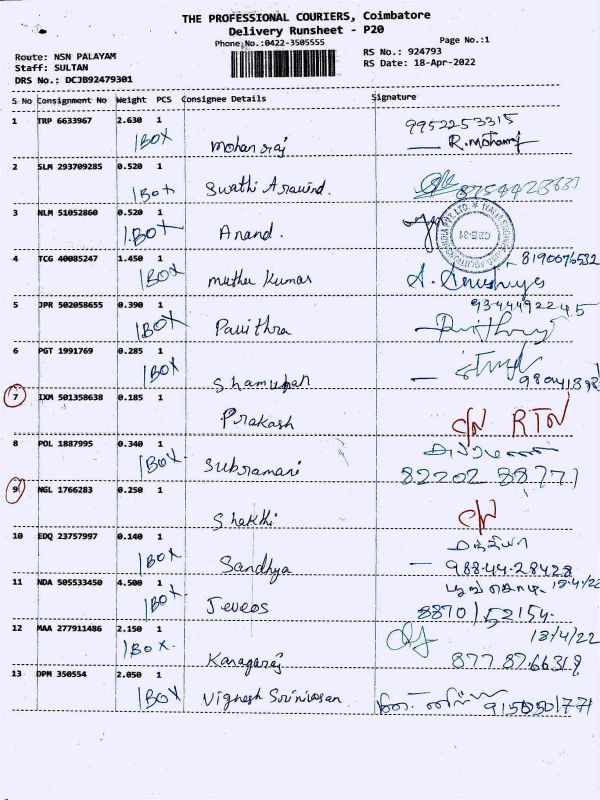 THE PROFESSIONAL COURIERS, Coimbatore
Delivery Runsheet - P20
Phone No.:0422-3505555
Page No.:1
Route: NSN PALAYAM
RS No.: 924793
Staff: SULTAN
RS Date: 18-Apr-2022
DRS No.: DCJB92479301
S No Consignment No Weight PCS Consignee Details Signature
1 TRP 6633967 2.630 1 9952253315
1 BOX Mohan raj R. Mohanraj
2 SLM 293709285 0.520 1
1 Box Swathi Aravind. 8754423637
3 NLM 51052860 0.520 1
1 BOX Anand.
4 TCG 40085247 1.450 1 8190076532
1 BOX Muthu Kumar
5 JPR 502058655 0.390 1 9344492245
1 BOX Pavithra
6 PGT 1991769 0.285 1
1 BOX
7 IXM 501358638 0.185 1
Prakash C/N RTN
8 POL 1887995 0.340 1
1 BOX. Subramani 82202 88771
9 NGL 1766283 0.250 1
Shakthi C/N
10 EDQ 23757997 0.140 1
1 BOX Sandhya 98844-28428
11 NDA 505533450 4.500 1 18/4/22
1 BOX. 8870152154
12 MAA 277911486 2.150 1 18/4/22
1 Box. Kanagaraj
13 DPM 350554 2.050 1
1 BOX Vignesh Srinivasan 9150501771